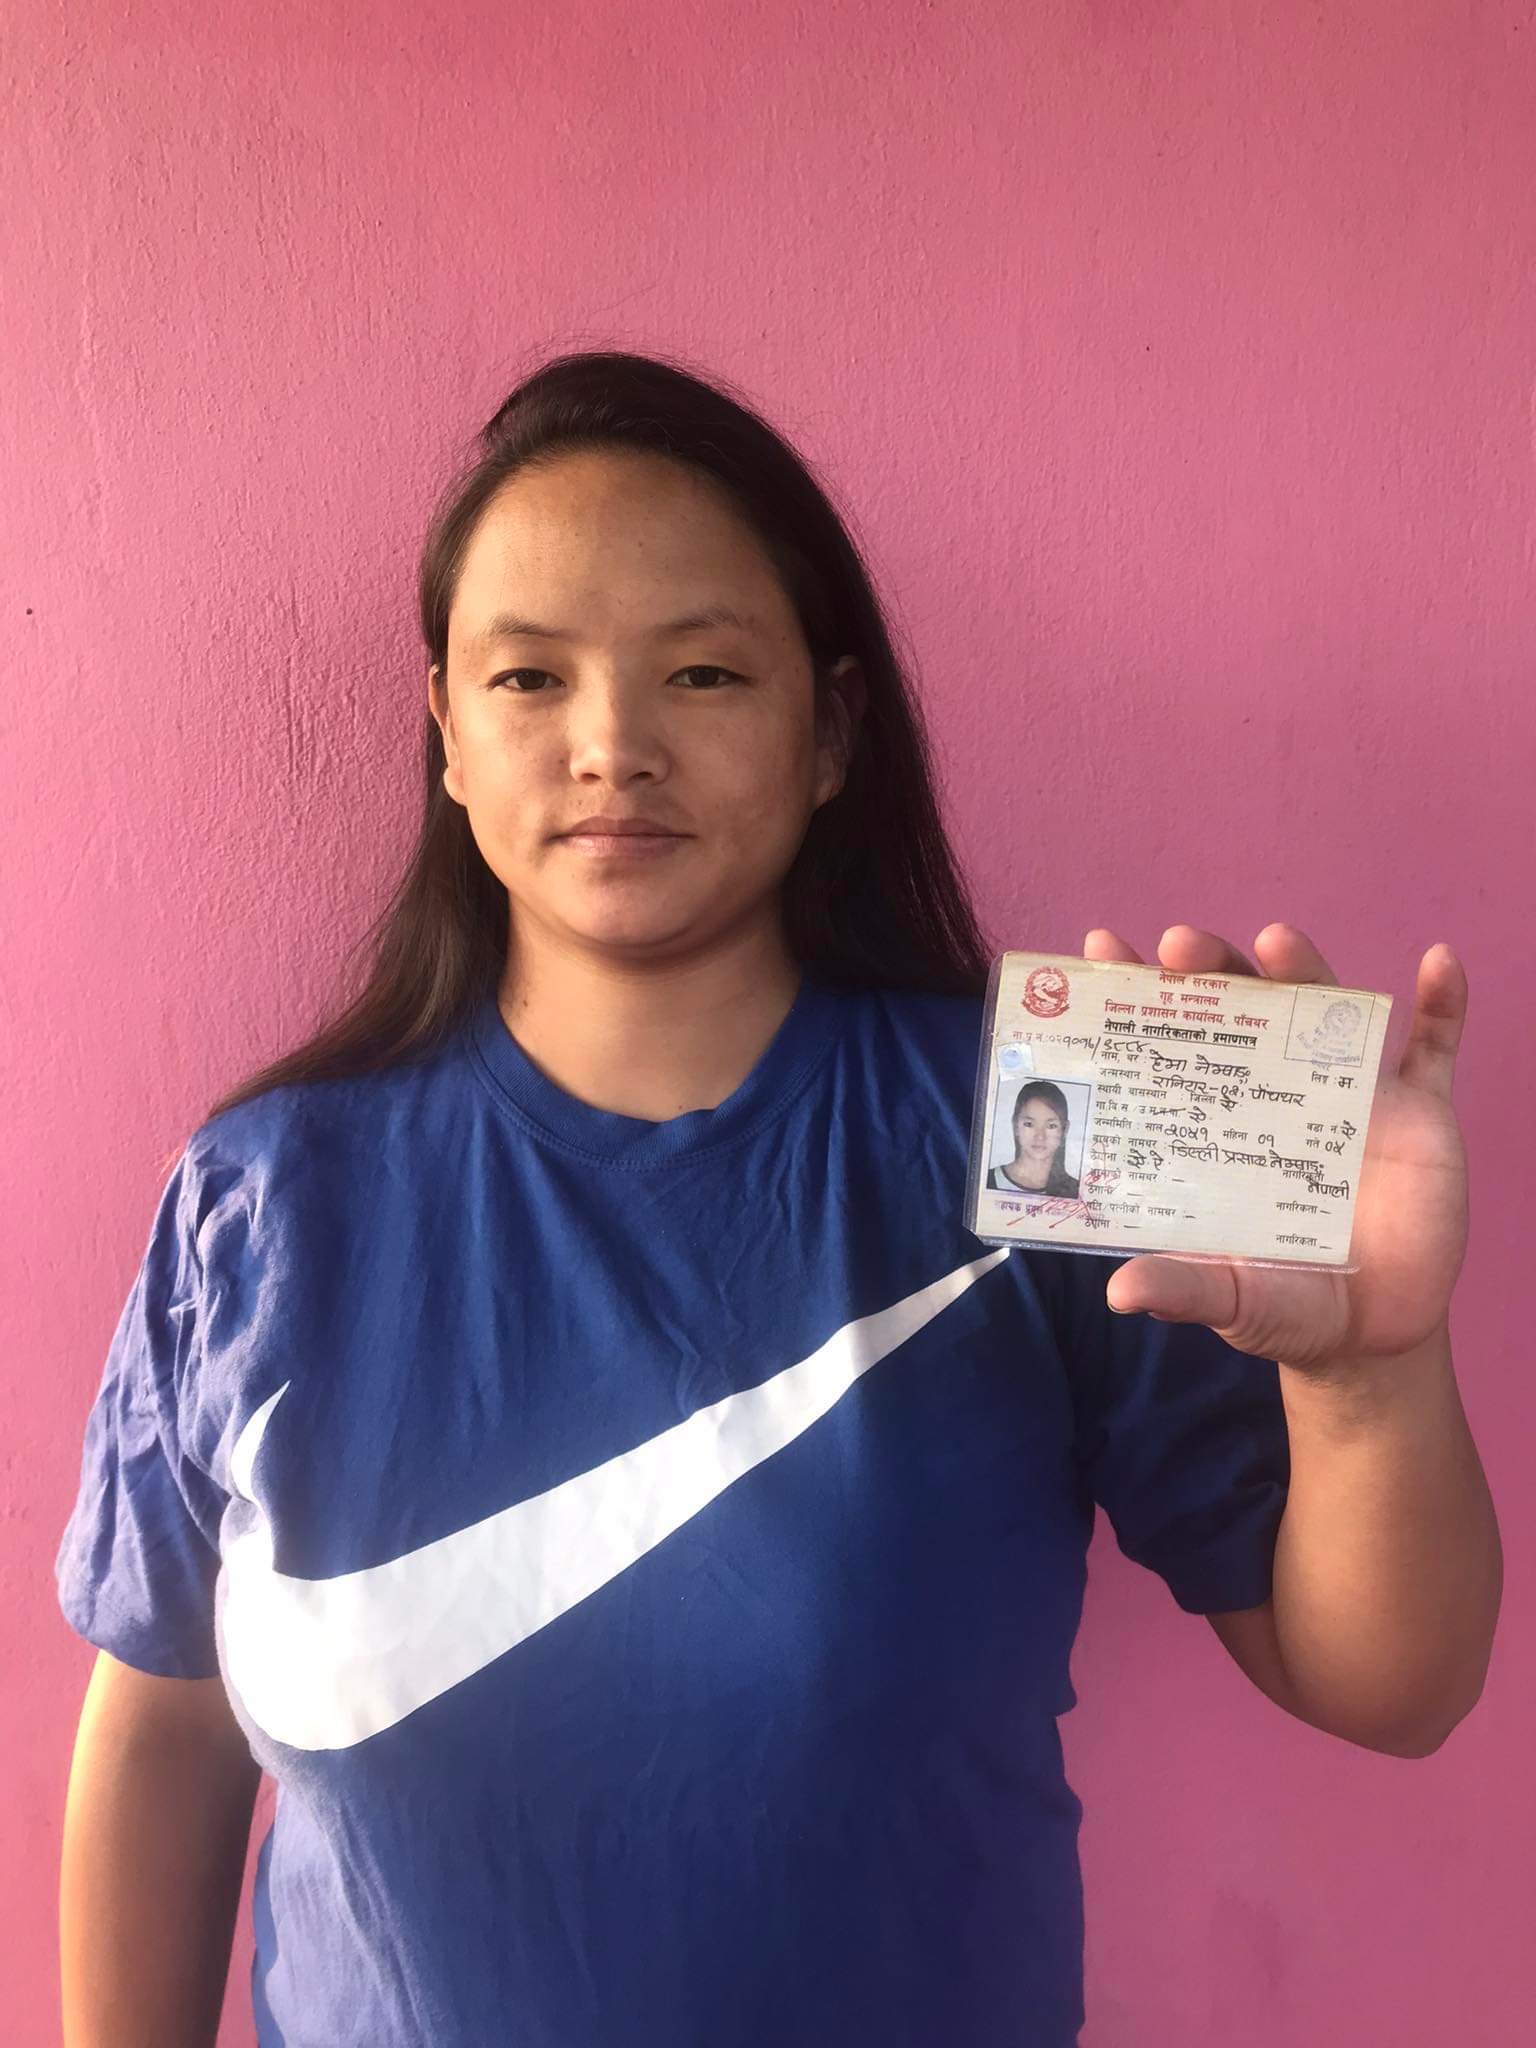 नेपाल सरकार
गृह मन्त्रालय
जिल्ला प्रशासन कार्यालय, पाँचथर
नेपाली नागरिकताको प्रमाणपत्र
ना.प्र.न.:
नाम, थर : हेमा नेम्वाङ लिङ्ग : म.
जन्मस्थान : पाँचथर
स्थायी बासस्थान : जिल्ला ऐ.
गा.वि.स./ ऐ. वडा नं. ऐ.
जन्ममिति : साल २०५१ महिना ०१ गते ०५
बाबुको नामथर : डिल्ली प्रसाद नेम्वाङ
ठेगाना : ऐ. ऐ. नागरिकता नेपाली
आमाको नामथर : –
ठेगाना – नागरिकता –
पति/पत्नीको नामथर : –
ठेगाना : – नागरिकता –